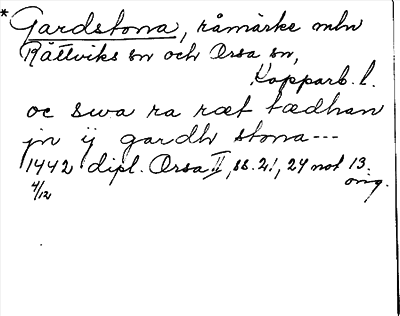 * Gardstona, råmärke mln
Rättviks sn och Orsa sn,
Kopparb. l.
oc swa ra ræt tædhan
jn ij gardh stona ---
1442 dipl. Orsa II, ss. 21, 24 not 13.
4/12 orig.